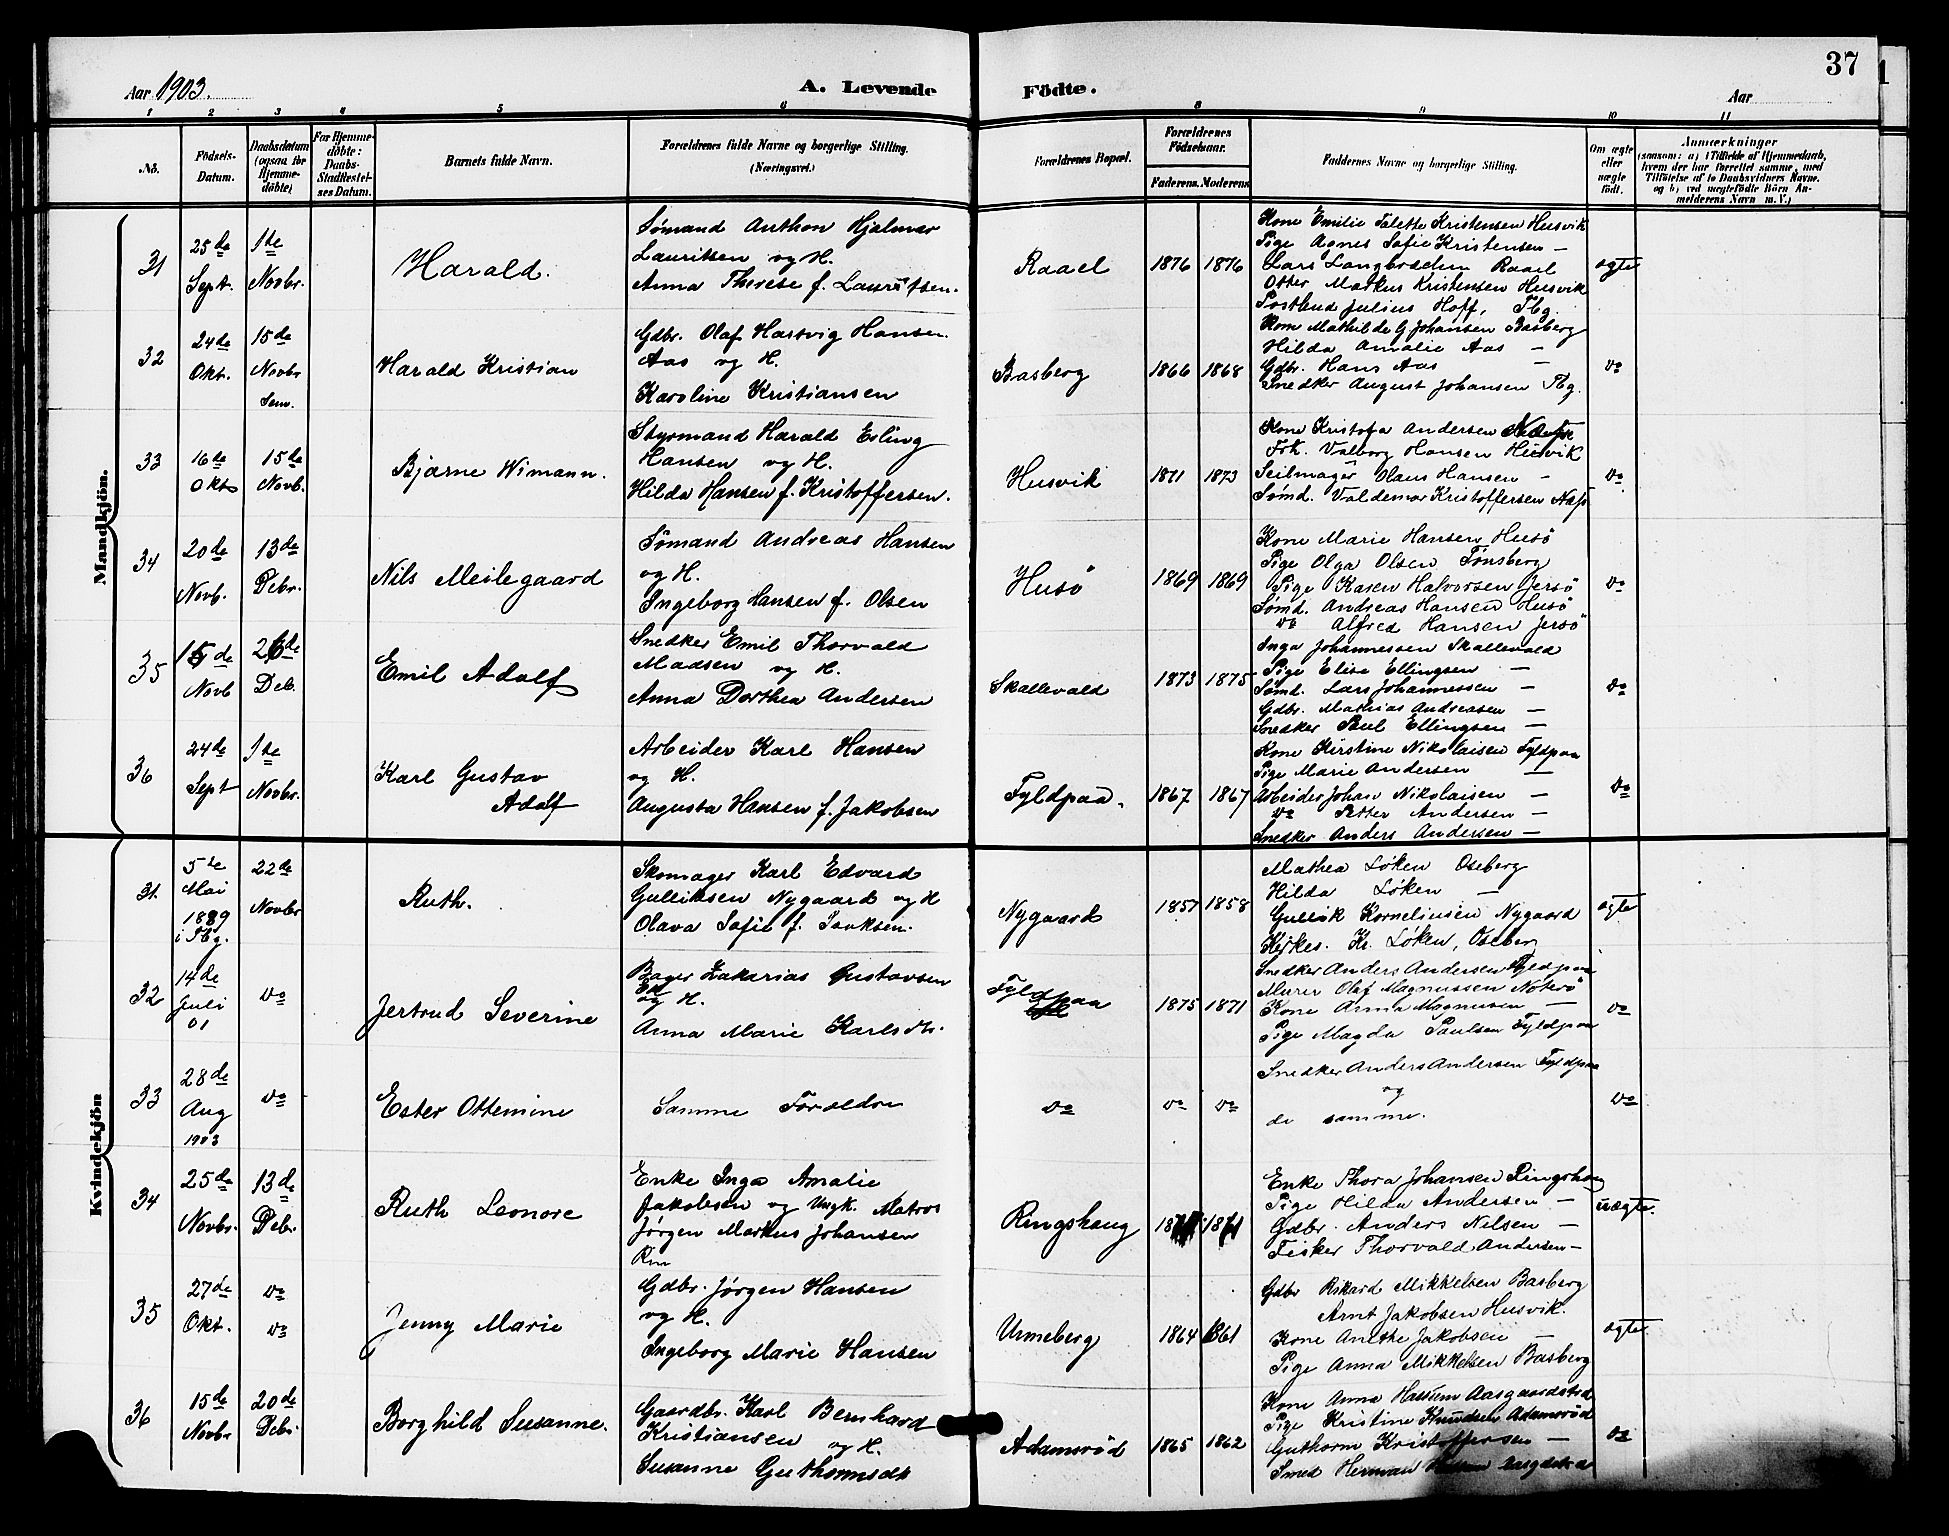 37
Aar 1903.
A. Levende Födte.
Aar
1 2 3 4 5 6 8 9 10 11
No.
Födsels-Datum.
Daabsdatum (ogsaa for Hjemme-döbte)
For Hjemme-döbte: Daabs-Stadfæstel-ses Datum.
Barnets fulde Navn.
Forældrenes fulde Navne og borgerlige Stilling. (Næringsvei.)
Forældrenes Bopæl.
Forældrenes Födselsaar.
Faderens. Moderens
Faddernes Navne og borgerlige Stilling.
Om ægte eller uægte födt.
Anmærkninger
(saasom: a) i Tilfælde af Hjemmedaab, hvem der har forrettet samme, med Tilföielse af to Daabsvidners Navne. og b) ved uægtefödte Börn An-melderens Navn m. V.)
Mandkjön.
31
25de Sept.
1ste Novbr.
Harald.
Sømand Anthon Hjalmar
Lauritsen og H.
Anna Therese f. Lauritsen.
Raael
1876 1876
Kone Emilie Talette Kristensen Husvik
Pige Agnes Sofie Kristensen —
Lars Langbrachen Raael
Otter Markus Kristensen Husvik
Postbud Julius Hoff, Tbg.
ægte
32
24de Okt.
15de Novbr Sem.
Harald Kristian
Gdbr. Olaf Hartvig Hansen
Aas og H.
Karoline Kristiansen
Basberg
1866 1868
Kone Mathilde G Johansen Basberg
Hilda Amalie Aas —
Gdbr. Hans Aas —
Snedker August Johansen Tbg.
do
33
16de Okt
15de Novb.
Bjarne Wimann.
Styrmand Harald Erling
Hansen og H.
Hilda Hansen f. Kristoffersen.
Husvik
1871 1873
Kone Kristofa Andersen
Frk. Valborg Hansen Husvik
Seilmager Olaus Hansen —
Sømd. Valdemar Kristoffersen Næs
do
34
20de Novb.
13de Debr.
Nils Meilegaard
Sømand Andreas Hansen
og H.
Ingeborg Hansen f. Olsen
Husö
1869 1869
Kone Marie Hansen Husö
Pige Olga Olsen Tønsberg
Pige Karen Halvorsen Jersö
Sømd. Andreas Hansen Husö
do Alfred Hansen Jersö
do
35
15de Novb
26de Deb.
Emil Adolf
Snedker Emil Thorvald
Madsen og H.
Anna Dorthea Andersen
Skallevald
1873 1875
Inga Johannessen Skallevald
Pige Elise Ellingsen —
Sømd. Lars Johannessen —
Gdbr. Mathias Andreasen —
Snedker Paul Ellingsen —
do
36
24de Sept
1ste Novbr.
Karl Gustav
Adolf
Arbeider Karl Hansen
og H.
Augusta Hansen f. Jakobsen
Fyldpaa.
1867 1867
Kone Kirstine Nikolaisen Fyldpaa
Pige Marie Andersen —
Arbeider Johan Nikolaisen —
do Petter Andersen —
Snedker Anders Andersen —
do
Kvindekjön
31.
5te Mai 1889 i Tbg.
22de Novbr
Ruth.
Skomager Karl Edvard
Gulliksen Nygaard og H
Olava Sofie f. Isaksen.
Nygaard
1857 1858
Mathea Løken Oseberg
Hilda Løken —
Gullik Kornelinsen Nygaard
Kirkes. Kr. Løken, Oseberg
ægte
32
14de Juli 01
do
Jertrud Severine
Bager Zakarias Gustavsen
og H.
Anna Marie Karlsdtr.
Fyldpaa
1875 1871
Snedker Anders Andersen Fyldpaa
Murer Olaf Magnussen Nöterö
Kone Anna Magnusen —
Pige Magda Paulsen Fyldpaa
do
33
28de Aug 1903
do
Ester Ottemine
Samme Forældre
do
do do
Snedker Anders Andersen Fyldpaa
og
de samme.
do
34
25de Novbr.
13de Debr.
Ruth Leonore
Enke Inga Amalie
Jakobsen og Ungk. Matros
Jørgen Markus Johansen
Ringshaug
1871
Enke Thora Johansen Ringshaug
Pige Hilda Andersen —
Gdbr. Anders Nilsen —
Fisker Thorvald Andersen —
uægte.
35
27de Okt.
do
do
Jenny Marie
Gdbr. Jørgen Hansen
og H.
Ingeborg Marie Hansen
Unneberg
1864 1861
Gdbr Rikard Mikkelsen Basberg
Arnt Jakobsen Husvik.
Kone Anethe Jakobsen —
Pige Anna Mikkelsen Basberg
ægte
36
15de Novbr
20de Debr
Borghild Susanne.
Gaardbr. Karl Bernhard
Kristiansen og H.
Susanne Guthormsdtr
Adamsröd
1865 1862
Kone Anna Hassum Aasgaardstrd
Pige Kristine Knudsen Adamsröd
Guthorm Kristoffersen —
Smed Herman
do